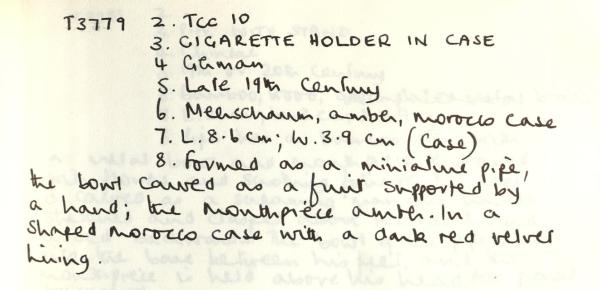 T3779 2. TCC 10
3. CIGARETTE HOLDER IN CASE
4 German
5. Late 19th Century
6. Meerschaum, amber, morocco case
7. L. 8.6 cm; W. 3.9 cm (Case)
8. Formed as a miniature pipe,
the bowl carved as a fruit supported by
a hand; the mouthpiece amber. In a
shaped morocco case with a dark red velvet
lining.